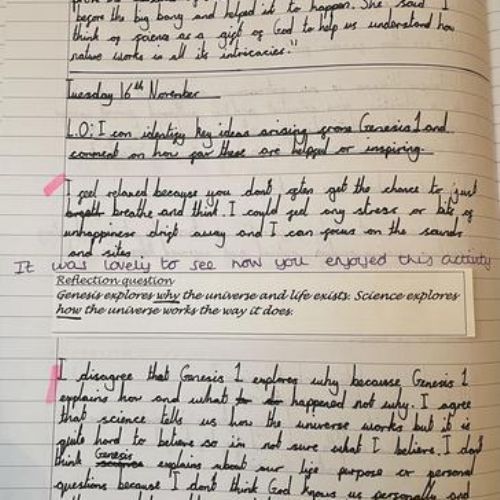 before the big bang and helped it to happen. She said "I
think of science as a gift of God to help us understand how
nature works in all its intricacies."
Tuesday 16th November
L.O: I can identify key ideas arising from Genesis 1 and
comment on how far these are helpful or inspiring.
I feel relaxed because you don't often get the chance to just
breathe and think. I could feel any stress or bits of
unhappiness drift away and I can focus on the sounds
and sites.
It was lovely to see how you enjoyed this activity
Reflection question
Genesis explores why the universe and life exists. Science explores
how the universe works the way it does.
I disagree that Genesis 1 explores why because Genesis 1
explains how and what happened not why. I agree
that science tells us how the universe works but it is
quite hard to believe so im not sure what I believe. I don't
think Genesis explains about our life purpose or personal
questions because I don't think God knows us personally and